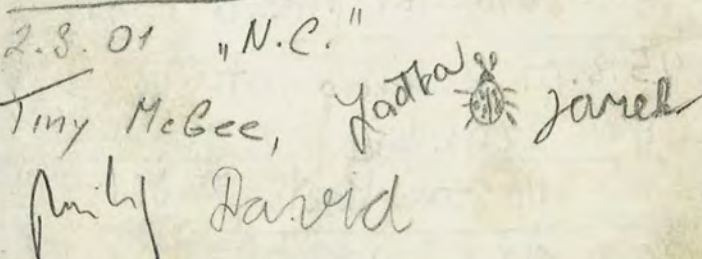 2.3.01 „N.C."
Tiny McGee, Jarek
David